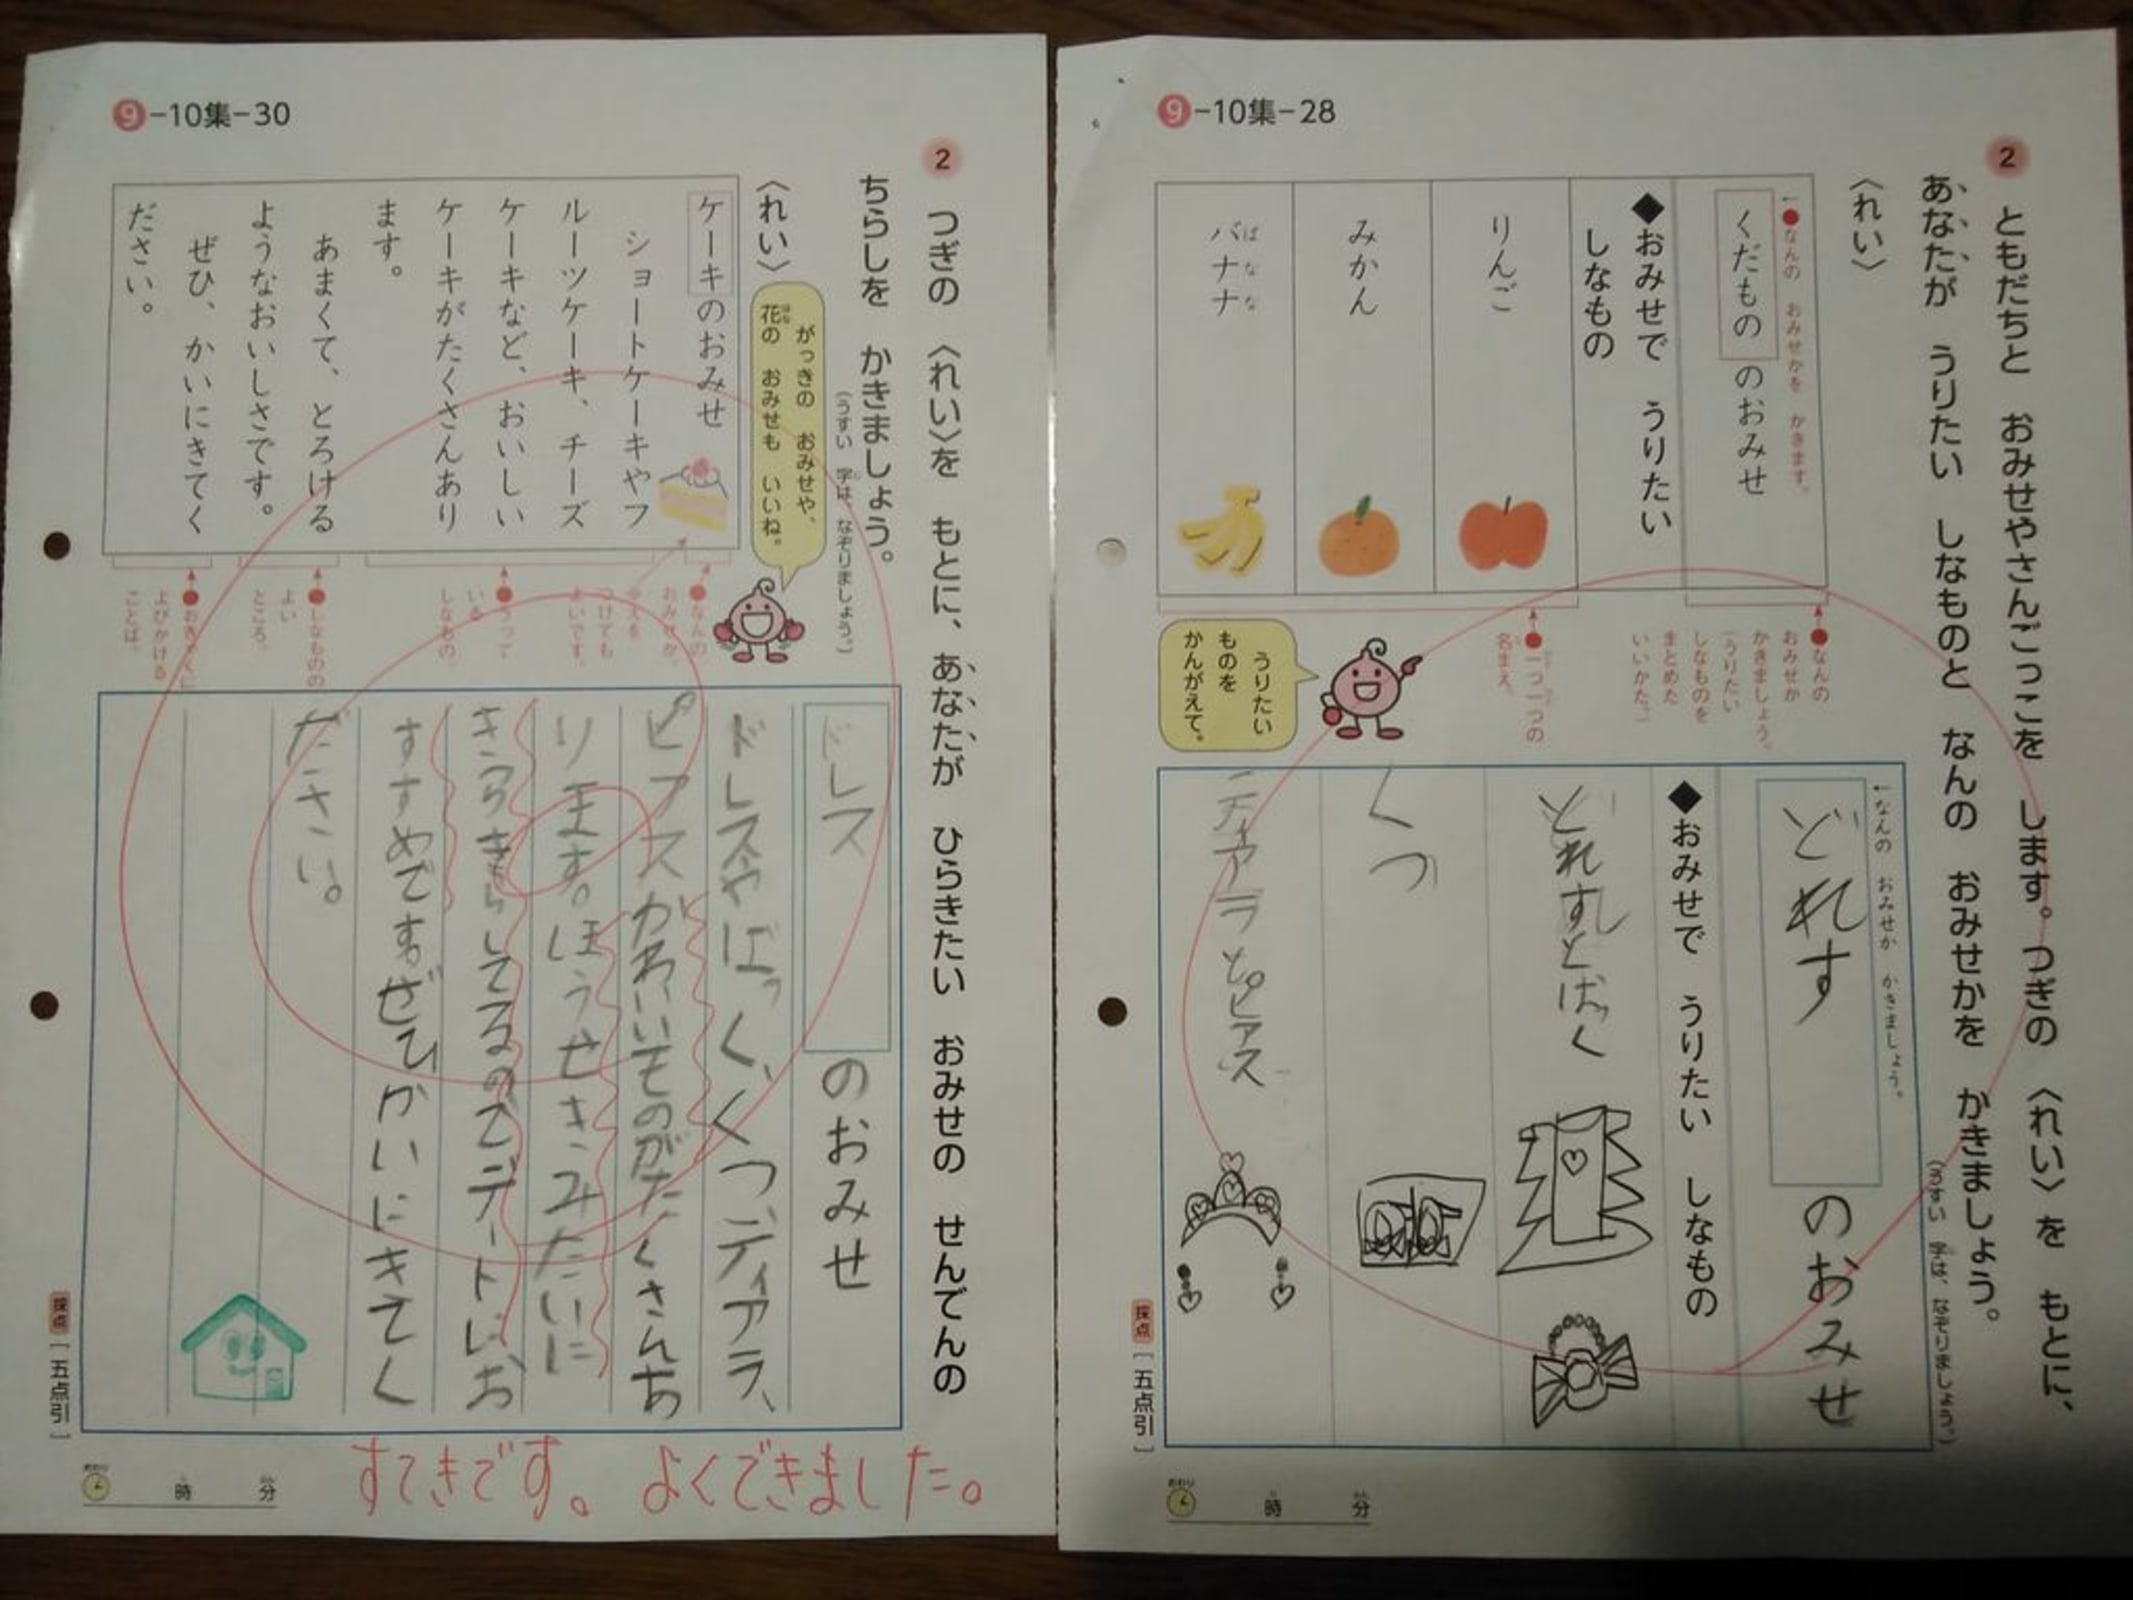 9-10集-28
2 ともだちと おみせやさんごっこを します。つぎの 〈れい〉を もとに、
あなたが うりたい しなものと なんの おみせかを かきましょう。
(うすい 字は、なぞりましょう。)
〈れい〉
←●なんの おみせかを かきます。
くだもの のおみせ
◆おみせで うりたい
しなもの
りんご
みかん
バナナ
ばなな
●なんの
おみせか
かきましょう。
(うりたい
しなものを
まとめた
いいかた。)
●一つ一つの
名まえ。
うりたい
ものを
かんがえて。
←なんの おみせか かきましょう。
どれす のおみせ
◆おみせで うりたい しなもの
どれすとばっく
くつ
ティアラとピアス
採点 [五点引]
おわり 時 分
9-10集-30
2 つぎの 〈れい〉を もとに、あなたが ひらきたい おみせの せんでんの
ちらしを かきましょう。
(うすい 字は なぞりましょう。)
〈れい〉
がっきの おみせや、
花の おみせも いいね。
はな
ケーキのおみせ
ショートケーキやフ
ルーツケーキ、チーズ
ケーキなど、おいしい
ケーキがたくさんあり
ます。
あまくて、とろける
ようなおいしさです。
ぜひ、かいにきてく
ださい。
●なんの
おみせか。
●うって
いる
しなもの。
●しなものの
よい
ところ。
●おきゃくに
よびかける
ことば。
つけても
よいです。
ドレス のおみせ
ドレスやばっく、くつ、ティアラ、
ピアスかわいいものがたくさんあ
ります。ほうせきみたいに
きらきらしてるのでデートにお
すすめです。ぜひかいにきてく
ださい。
採点 [五点引]
おわり 時 分
すてきです。よくできました。